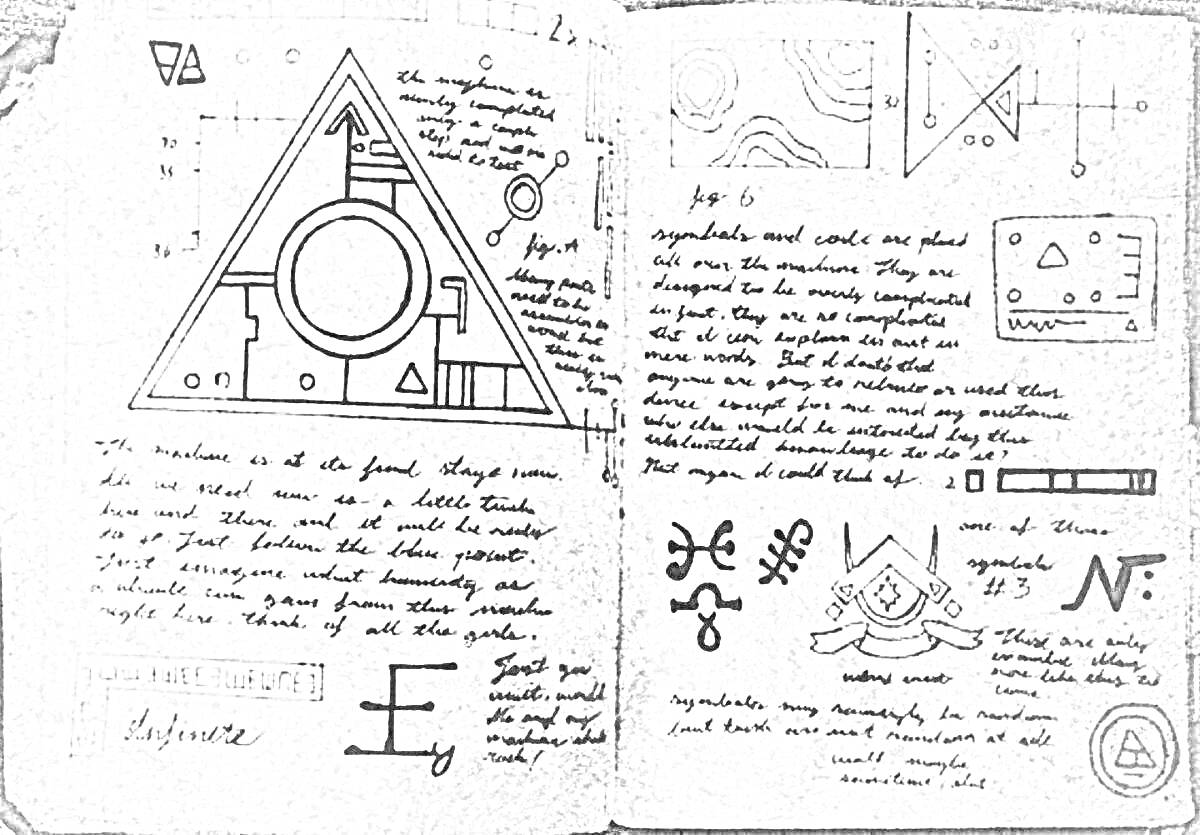 the machine is
nearly completed
only a couple
steps and we are
read to test
fig. A
Many parts
need to be
assembled
around but
this is
nearly
done
70
35
36
The machine is at its final stage now.
All we need now is a little tweak
here and there and it will be ready
to go. Just follow the blue print.
Just imagine what humanity as
a whole can gain from this machine
right here. think of all the girls.
Infinite
Just you
wait, world
Me and my
machine shall
rock!
fig 6
symbols and code are placed
all over the machine. They are
designed to be overly complicated
in fact, they are so complicated
that I can explain it out in
mere words. But I doubt that
anyone are going to rebuild or used this
device except for me and my assistance
who else would be interested by this
knowledge to do it?
I could think of
2
one of three
symbols
#3
These are only
example. Many
more like they to
come
symbols may seemingly be random
but they are not random at all
well maybe
sometime